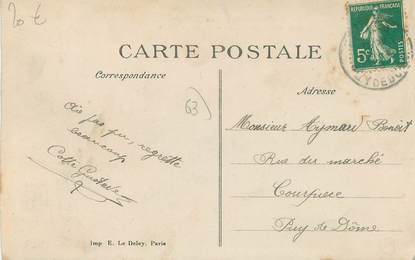 20 €
REPUBLIQUE FRANÇAISE
5c
POSTES
CARTE POSTALE
Correspondance
Adresse
63
ai pas pu, regrette
beaucoup
Monsieur Aymard Benoit
Rue du marché
Courpière
Puy de Dôme
Imp. E. Le Deley, Paris